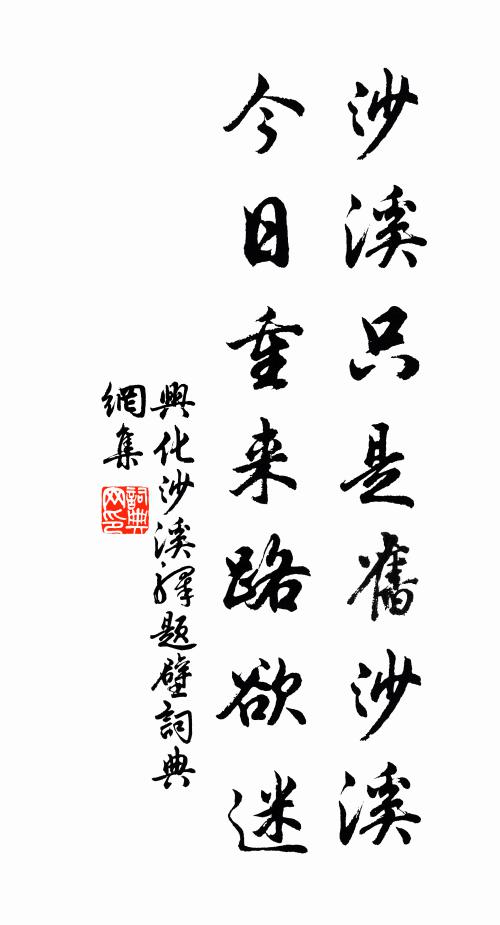 沙溪只是舊沙溪
今日重来路欲迷
興化沙溪驛題壁詞典
網集
詞典網印